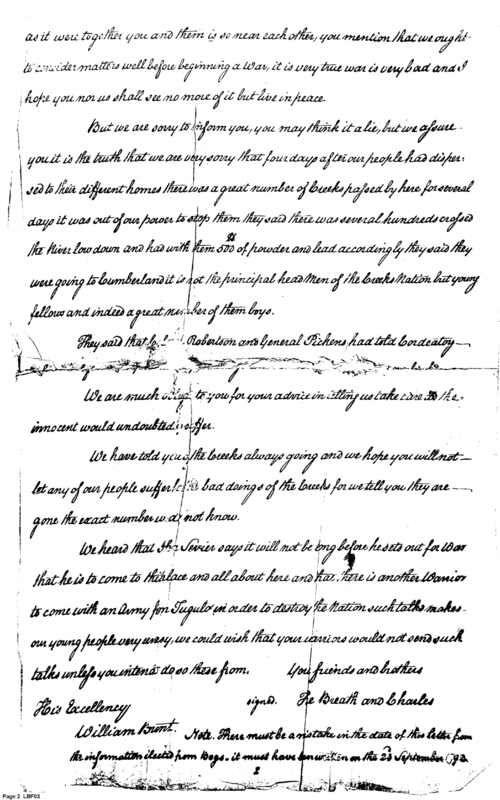 as it were together you and them is so near each other, you mention that we ought
to consider matters well before beginning a War, it is very true war is very bad and I
hope you nor us shall see no more of it but live in peace.
But we are sorry to inform you, you may think it a lie, but we assure
you it is the truth that we are very sorry that four days after our people had disper-
sed to their different homes there was a great number of Creeks passed by here for several
days it was out of our power to stop them they said there was several hundreds crossed
the River low down and had with them 500 of powder and lead accordingly they said they
were going to Cumberland it is not the principal head Men of the Creeks Nation but young
fellows and indeed a great number of them boys.
They said that Robertson and General Pickens had told
We are much to you for your advice in us take care the
innocent would undoubted suffer.
We have told you of the Creeks always going and we hope you will not
let any of our people suffer bad doings of the Creeks for we tell you they are
gone the exact number we do not know.
We heard that Sevier says it will not be long before he sets out for War
that he is to come to this place and all about here and there is another Warrior
to come with an Army from Tugulo in order to destroy the Nation such talks makes
our young people very uneasy, we could wish that your warriors would not send such
talks unless you intend to do so these from. Your friends and brothers
His Excellency signed. The Breath and Charles
William Blunt.
Note. There must be a mistake in the date of this letter from
the information from Bogs - it must have been written on the 2d September 1792.
2
Page 2 LBF03